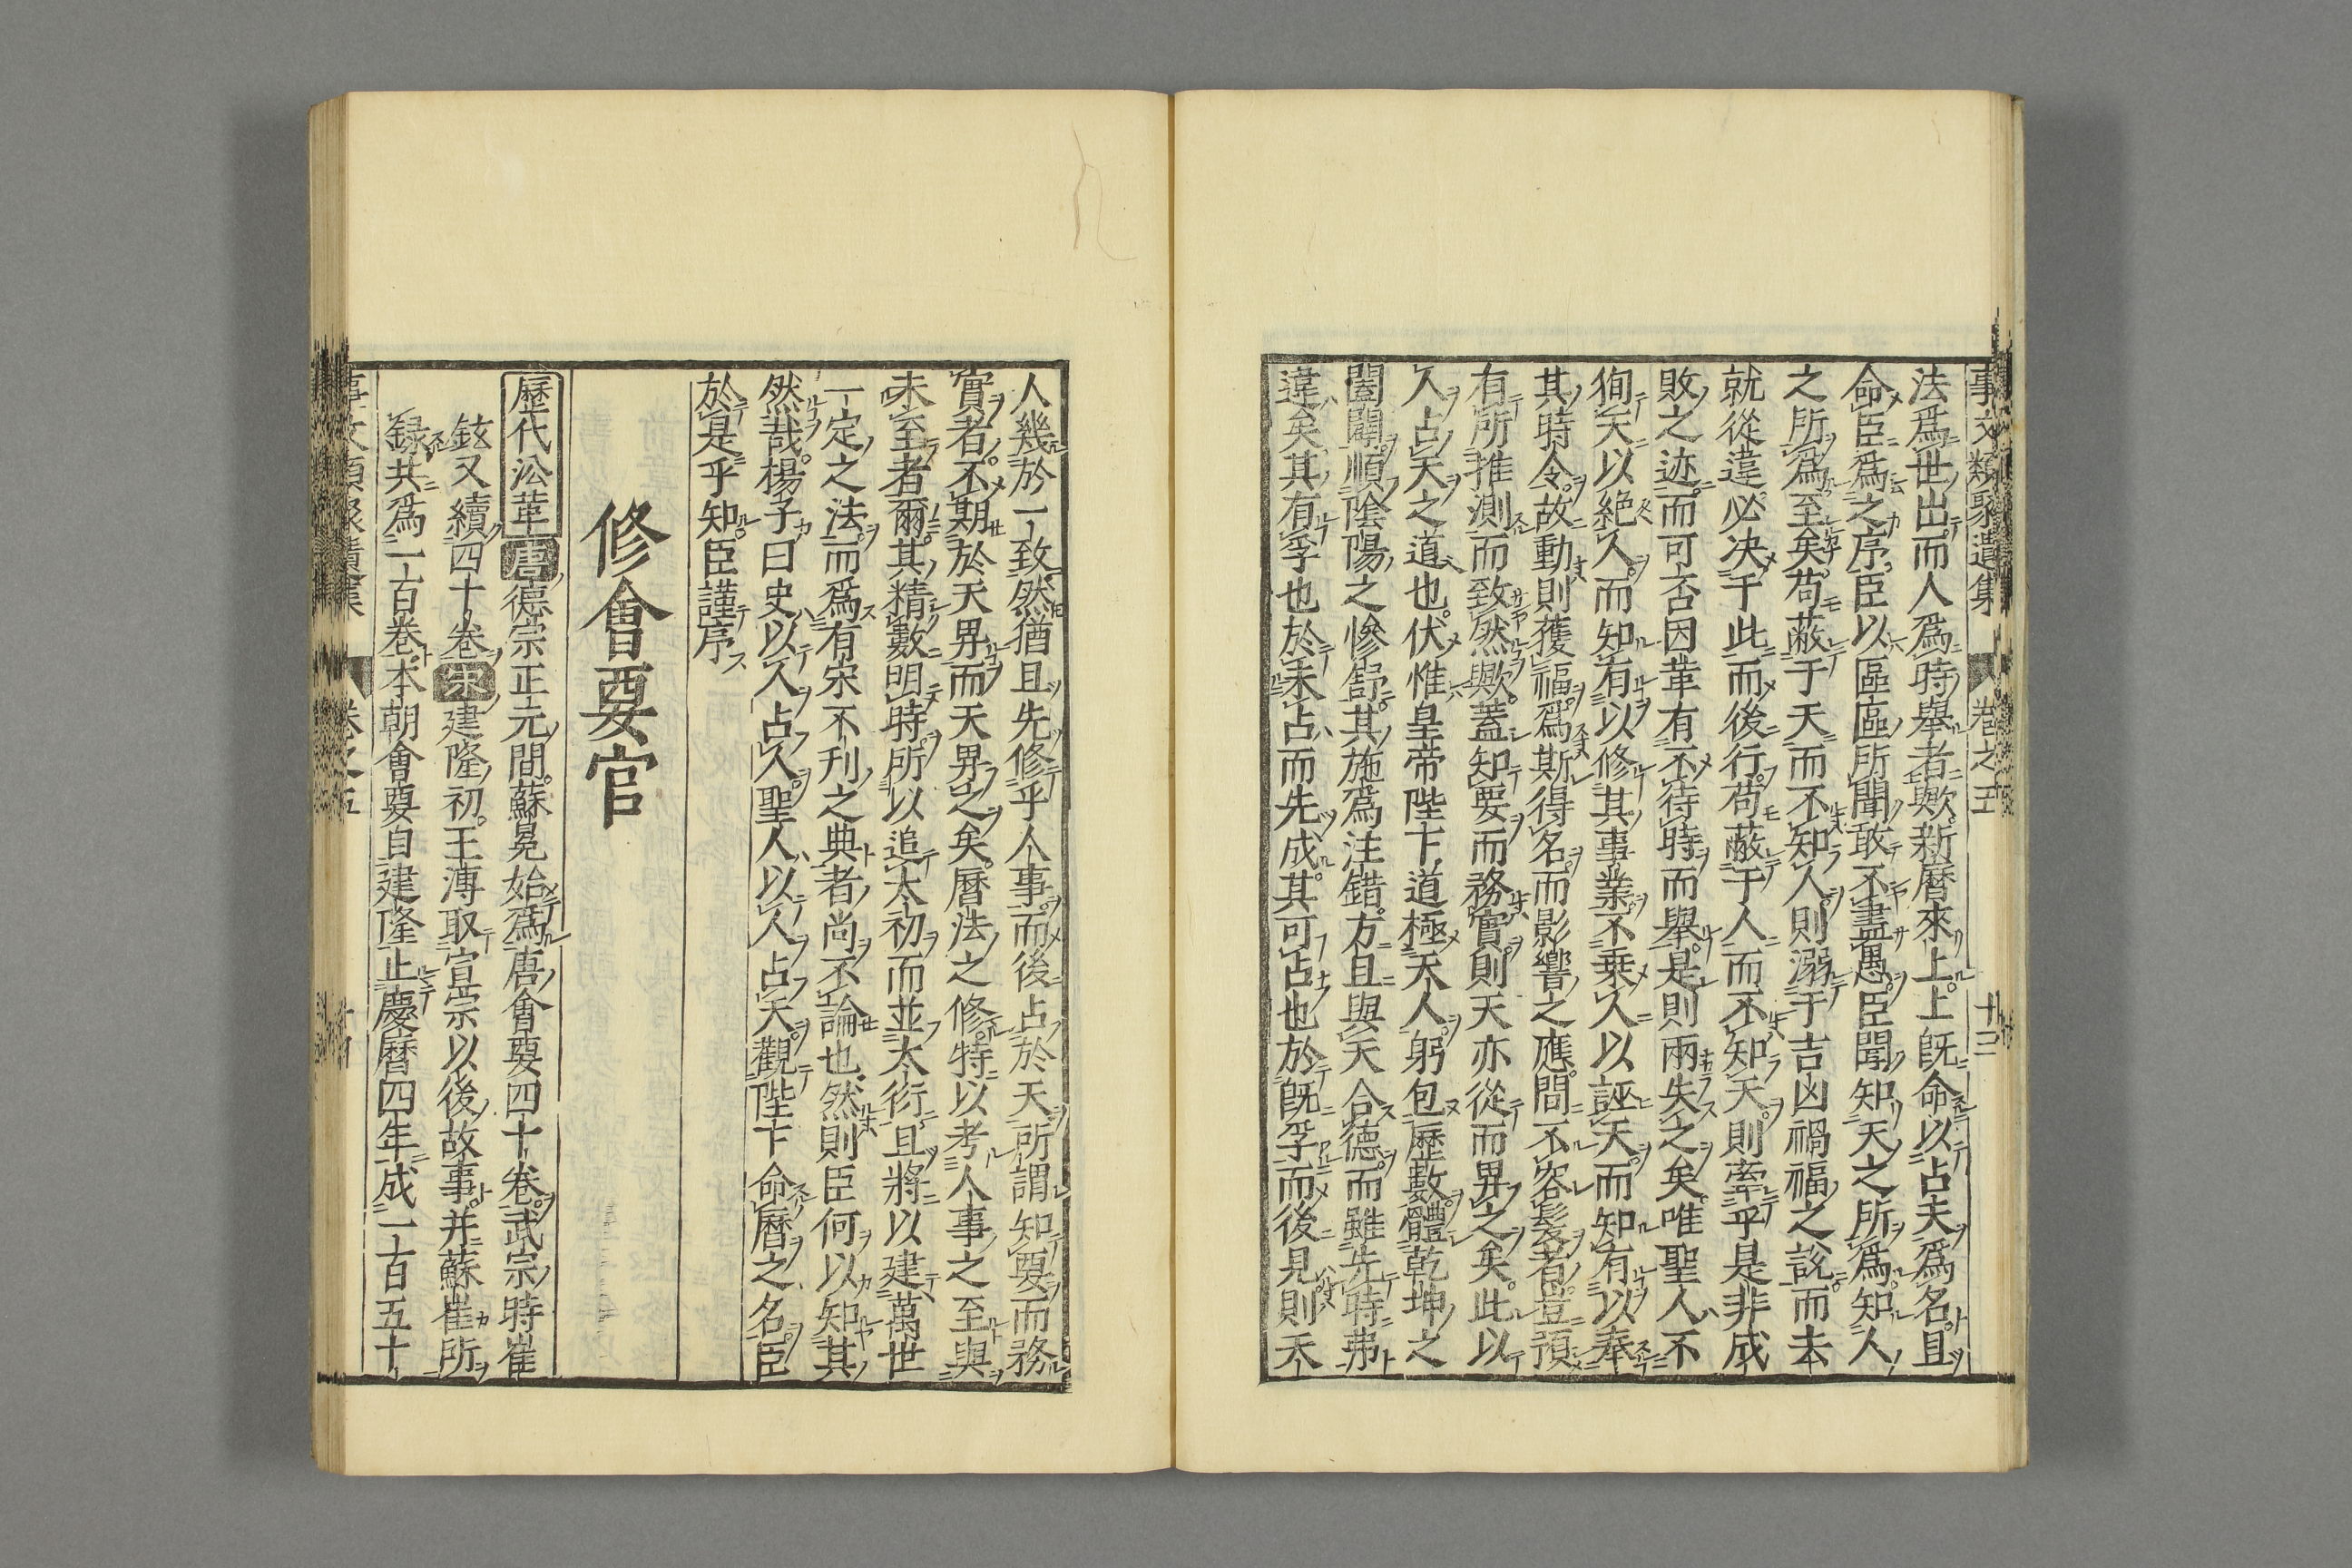 事文類聚遺集 卷之五 十三
法爲世出而人爲時舉者歟新曆來上上旣命以占天爲名且
命臣爲之序臣以區區所聞敢不盡愚臣聞知天之所爲知人
之所爲至矣苟蔽于天而不知人則溺于吉凶禍福之說而去
就從違必决于此而後行苟蔽于人而不知天則牽乎是非成
敗之迹而可否因革有不待時而舉是則兩失之矣唯聖人不
狥天以絶人而知有以修其事業不乗人以誣天而知有以奉
其時令故動則獲福爲斯得名而影響之應間不容髮者豈預
有所推測而致然歟蓋知要而務實則天亦從而畀之矣此以
人占天之道也伏惟皇帝陛下道極天人躬包歷數體乾坤之
闔闢順陰陽之慘舒其施爲注錯方且與天合德而雖先時弗
違矣其有孚也於未占而先成其可占也於旣孚而後見則天
人幾於一致然猶且先修乎人事而後占於天所謂知要而務
實者不期於天畀而天畀之矣曆法之修特以考人事之至與
未至者爾其精數明時所以追太初而並太衍且將以建萬世
一定之法而爲有宋不刋之典者尚不論也然則臣何以知其
然哉楊子曰史以人占人聖人以人占天觀陛下命曆之名臣
於是乎知臣謹序
修會要官
歷代㳂革 唐德宗正元間蘇冕始爲唐會要四十卷武宗時崔
鉉又續四十卷宋建隆初王溥取宣宗以後故事并蘇崔所
録共爲一百卷本朝會要自建隆止慶曆四年成一百五十
卷之五